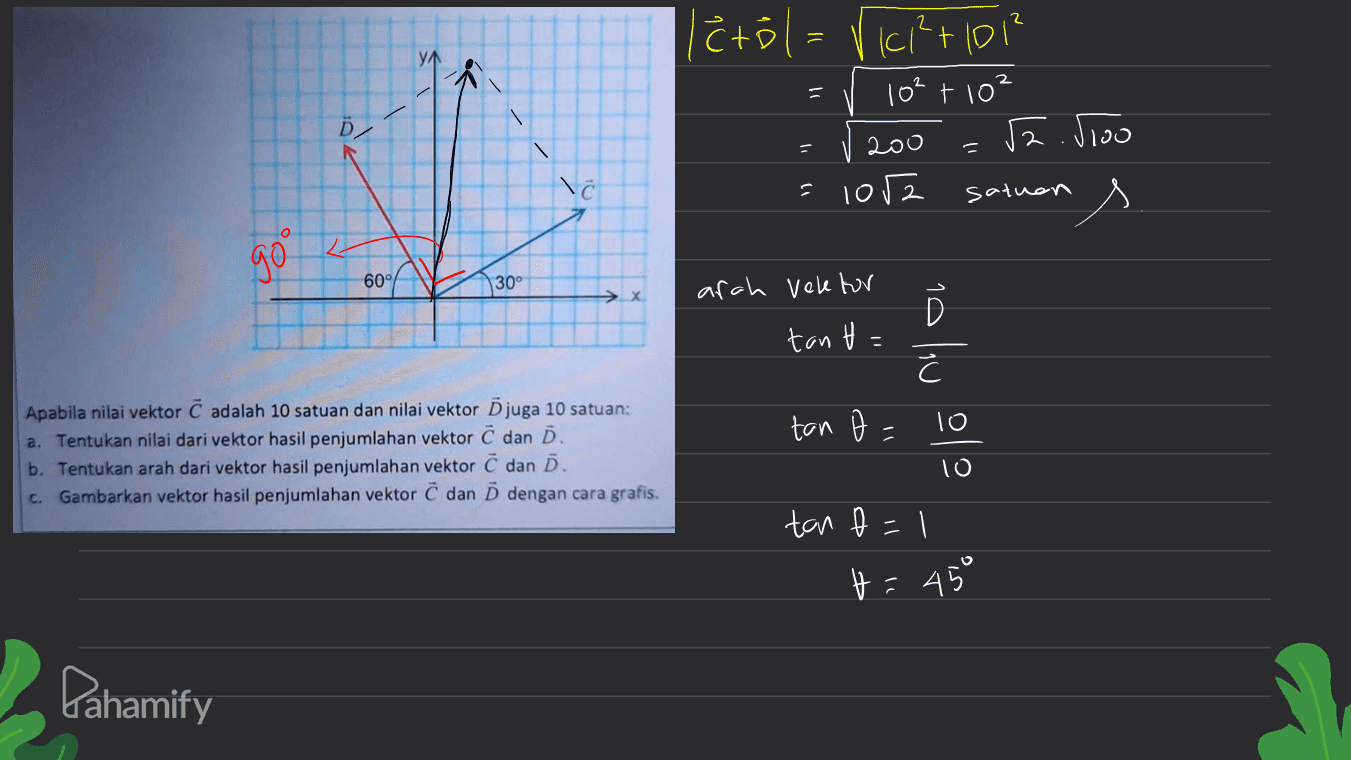 y
D⃗
C⃗
90°
60°
30°
x
Apabila nilai vektor C⃗ adalah 10 satuan dan nilai vektor D⃗ juga 10 satuan:
a. Tentukan nilai dari vektor hasil penjumlahan vektor C⃗ dan D⃗.
b. Tentukan arah dari vektor hasil penjumlahan vektor C⃗ dan D⃗.
c. Gambarkan vektor hasil penjumlahan vektor C⃗ dan D⃗ dengan cara grafis.
|C⃗+D⃗| = √|C|²+|D|²
= √10² + 10²
= √200 = √2 . √100
= 10√2 satuan
arah vektor
tan θ = D⃗ / C⃗
tan θ = 10 / 10
tan θ = 1
θ = 45°
Pahamify